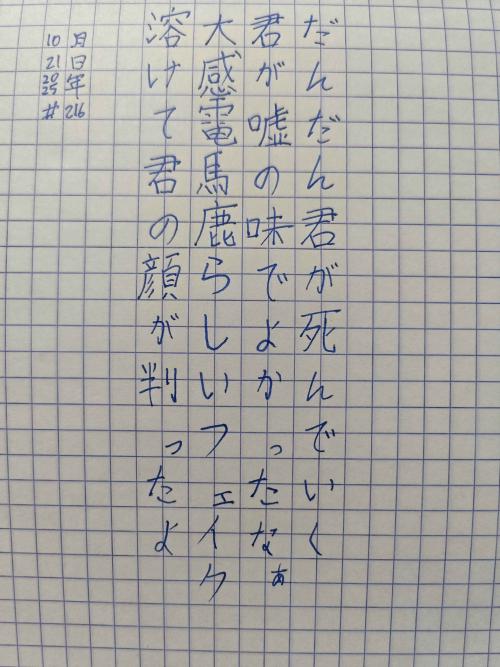 だんだん君が死んでいく
君が嘘の味でよかったなぁ
大感電馬鹿らしいフェイク
溶けて君の顔が判ったよ
10月
21日
2025年
#216